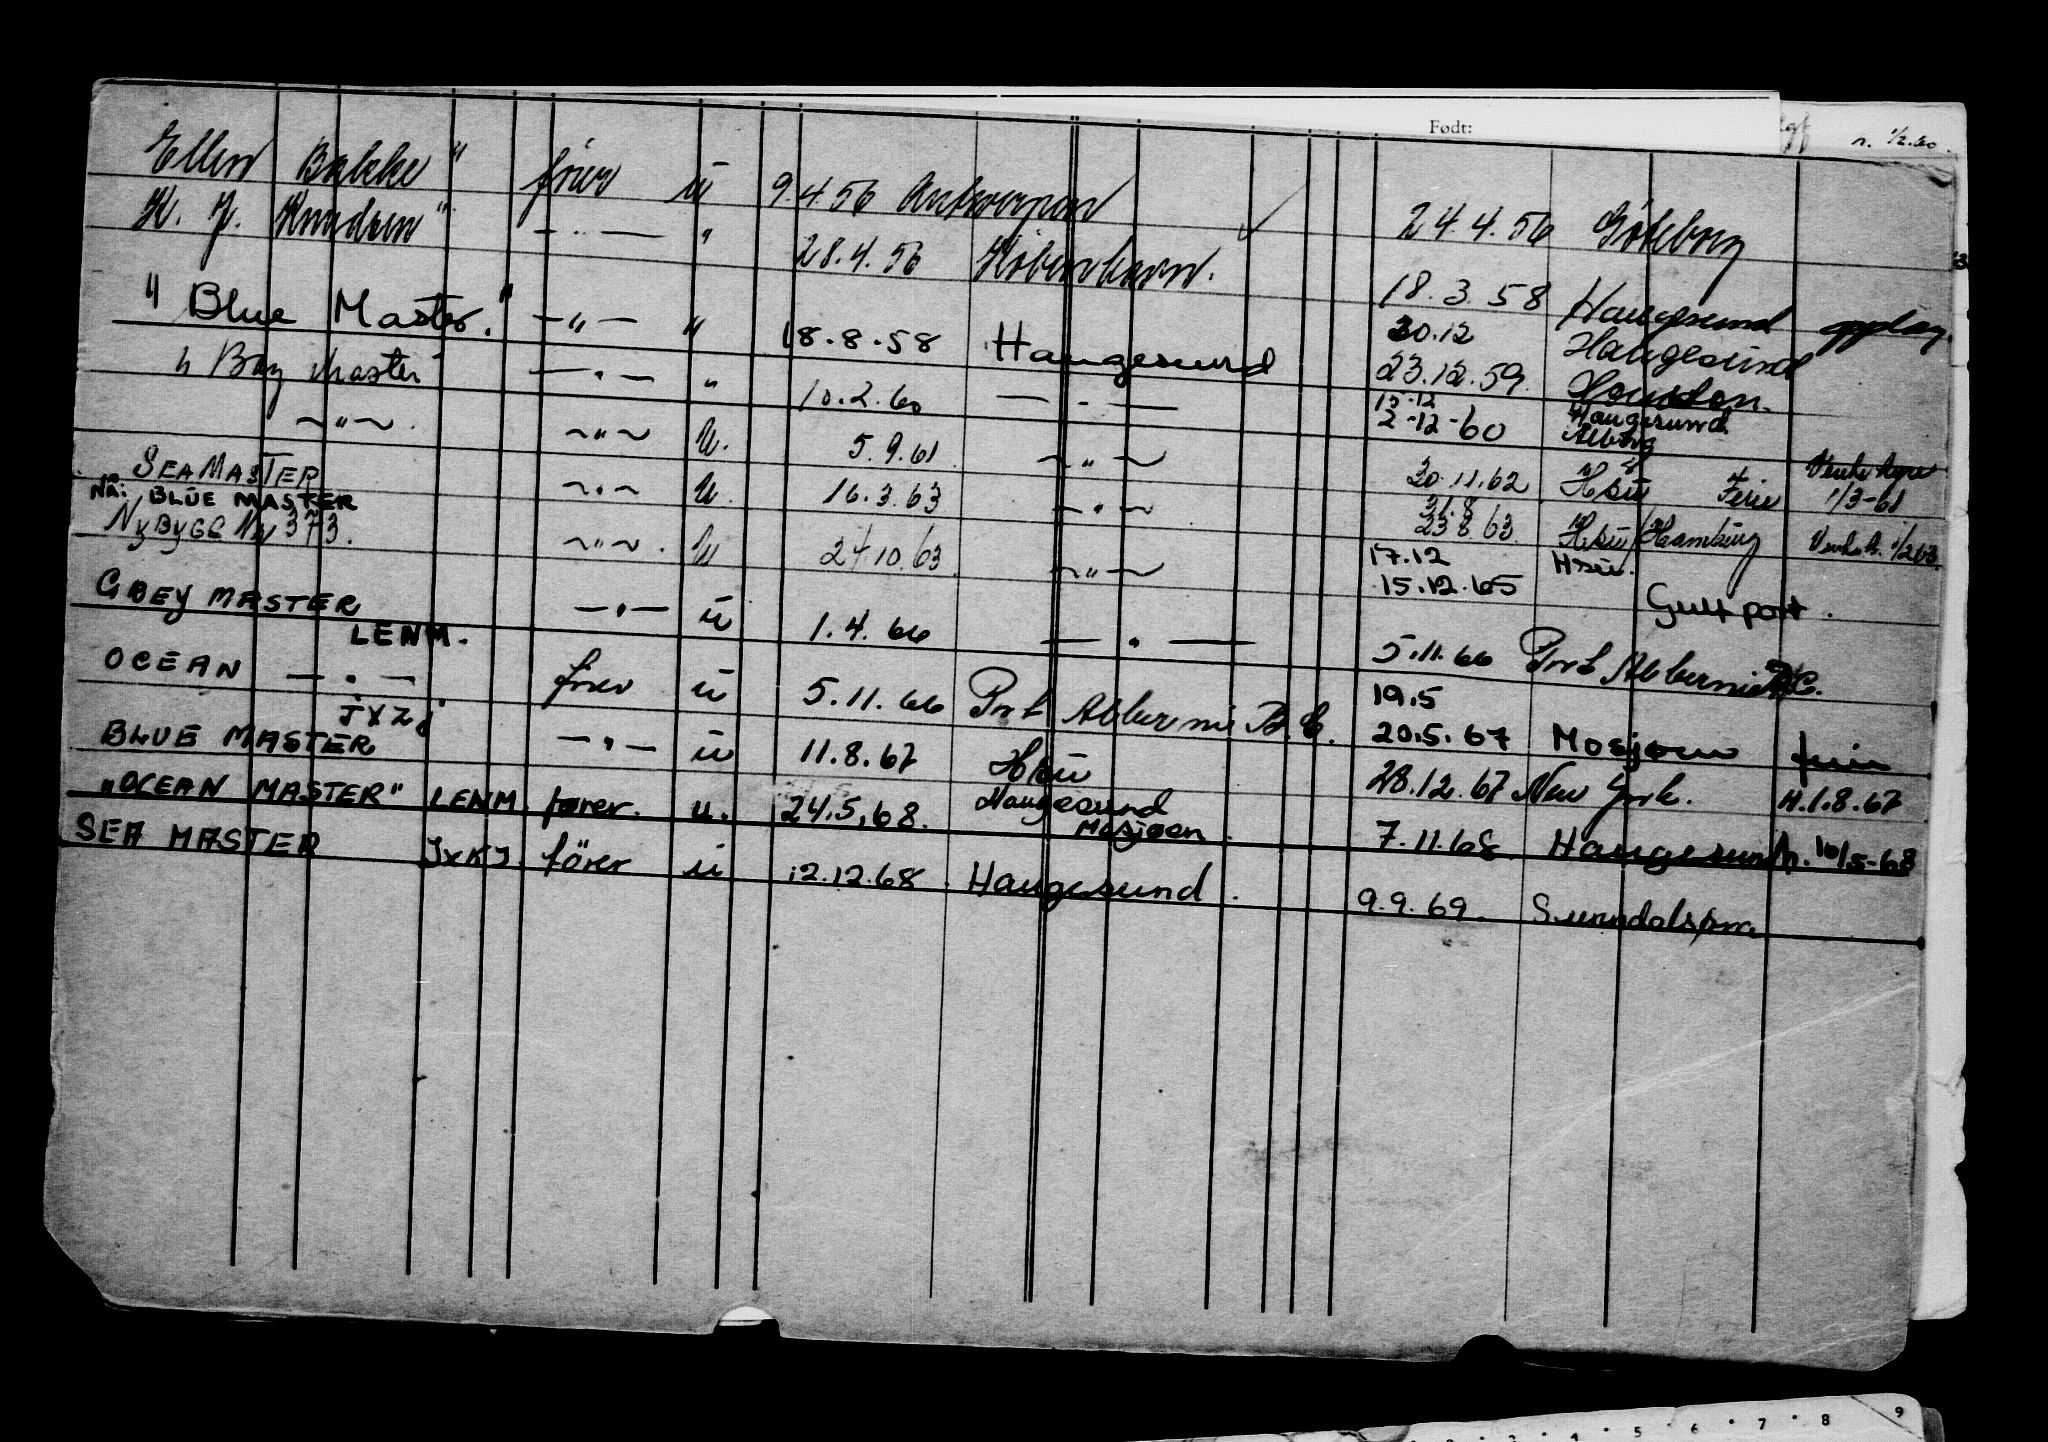 Født:
n. 1/2.60.
Ellen Bakke" fører u 9.4.56 Antwerpen 24.4.56 Göteborg
K. J. Knudsen" -"- " 28.4.56 København. 18.3.58 Haugesund opplag.
"Blue Master." -"- " 18.8.58 Haugesund 20.12 Haugesund
23.12.59. Houston.
" Bay Master" -"- " 10.2.60 -"- 15.12 Haugesund
2-12-60 Ålborg
~"~. ~"~ U. 5.9.61. ~"~ 30.11.62 Hsu Ferie 1/3-61
SEA MASTER ~"~ U. 16.3.63 ~"~ 31.8
23.8.63. Hsu/Hamburg
Nå: BLUE MASTER
NyByGG Nr 373. ~"~. U 24.10.63. ~"~ 17.12 Hsu.
15.12.65 Gulfport.
GREY MASTER -"- u 1.4.66 -"- 5.11.66 Port Alberni B.C.
LENM.
OCEAN -"- fører u 5.11.66 Port Alberni B.C. 19.5
20.5.67 Mosjøen ferie
JXZJ
BLUE MASTER -"- u 11.8.67 Hsu 28.12.67 New York. H.1.8.67
"OCEAN MASTER" LENM. fører. u. 24.5.68. Haugesund
Mosjøen. 7.11.68. Haugesund h. 10/5-68
SEA MASTER JXKJ. fører u 12.12.68. Haugesund. 9.9.69. Sunndalsøra
5 6 7 8 9